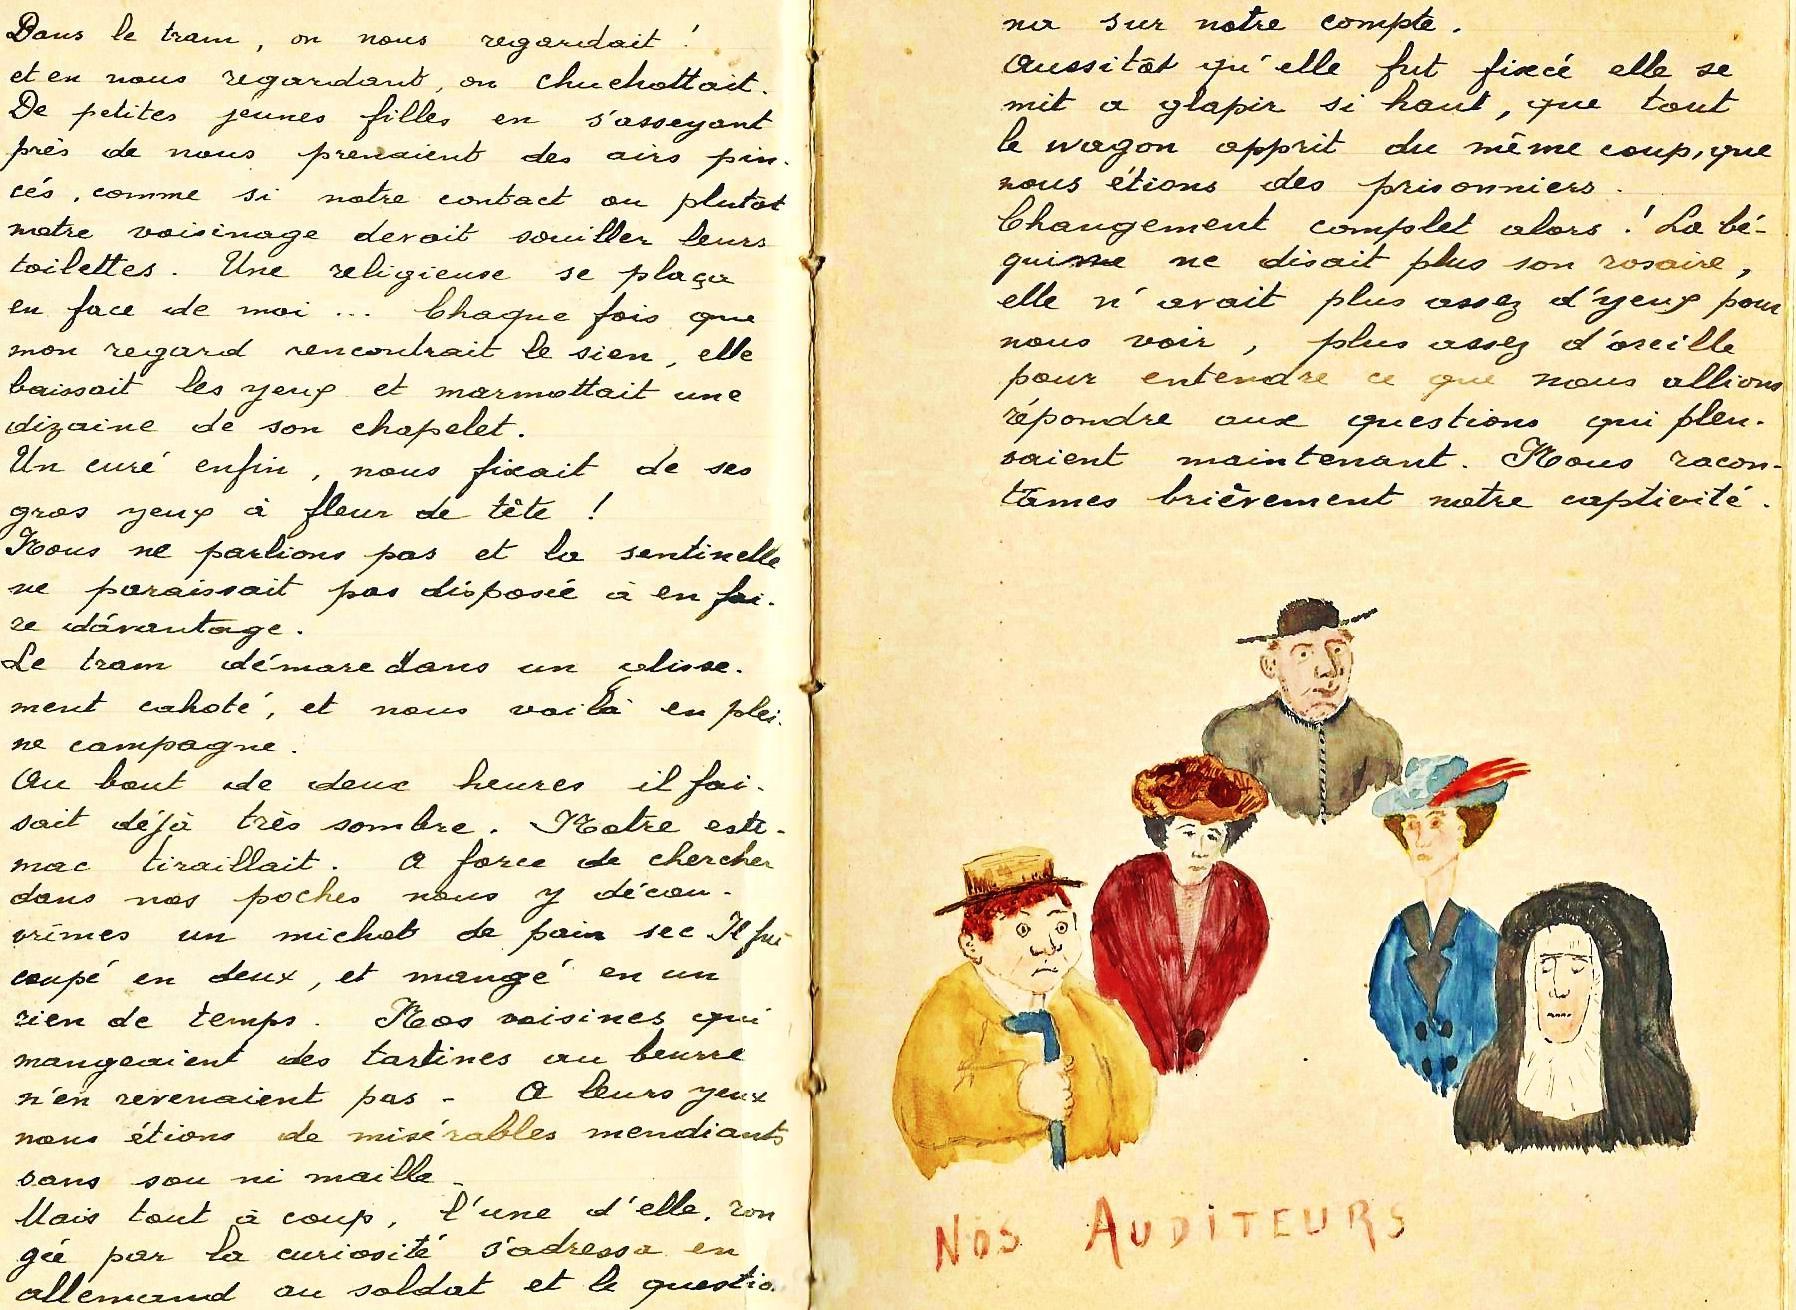 Dans le tram, on nous regardait !
et en nous regardant, on chuchottait.
De petites jeunes filles en s'asseyant
près de nous prenaient des airs pin-
cés, comme si notre contact ou plutôt
notre voisinage devait souiller leurs
toilettes. Une religieuse se plaça
en face de moi ... Chaque fois que
mon regard rencontrait le sien, elle
baissait les yeux et marmottait une
dizaine de son chapelet.
Un curé enfin, nous fixait de ses
gros yeux à fleur de tête !
Nous ne parlions pas et la sentinelle
ne paraissait pas disposé à en fai-
re dávantage.
Le tram démare dans un glisse-
ment cahoté, et nous voilà en plei-
ne campagne.
Au bout de deux heures il fai-
sait déjà très sombre. Notre esto-
mac tiraillait. A force de chercher
dans nos poches nous y décou-
vrîmes un michot de pain sec Il fut
coupé en deux, et mangé en un
rien de temps. Nos voisines qui
mangeaient des tartines au beurre
n'en revenaient pas - A leurs yeux
nous étions de misérables mendiants
sans sou ni maille -
Mais tout à coup, l'une d'elle, ron
gée par la curiosité s'adressa en
allemand au soldat et le questio-
na sur notre compte.
Aussitôt qu'elle fut fixcé elle se
mit a glapir si haut, que tout
le wagon apprit du même coup, que
nous étions des prisonniers.
Changement complet alors ! La bé-
guine ne disait plus son rosaire,
elle n'avait plus assez d'yeux pour
nous voir, plus assez d'oreille
pour entendre ce que nous allions
répondre aux questions qui pleu-
vaient maintenant. Nous racon-
tâmes brièvement notre captivité.
NOS AUDITEURS